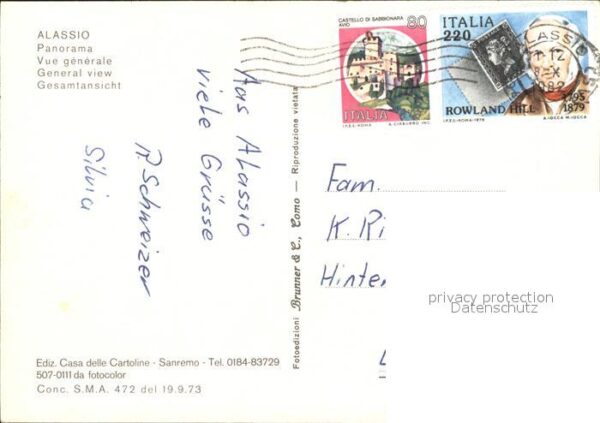 ALASSIO
Panorama
Vue générale
General view
Gesamtansicht
CASTELLO DI SABBIONARA
AVIO
80
ITALIA
I.P.Z.S.-ROMA
ITALIA
220
ROWLAND HILL
1795
1879
I.P.Z.S.-ROMA-1979
ALASSIO
12
Aus Alassio
viele Grüsse
R. Schweizer
Silvia
Fotoedizioni Brunner & C., Como — Riproduzione vietata
Fam.
K. Ri
Hinter
privacy protection
Datenschutz
Ediz. Casa delle Cartoline - Sanremo - Tel. 0184-83729
507-0111 da fotocolor
Conc. S.M.A. 472 del 19.9.73